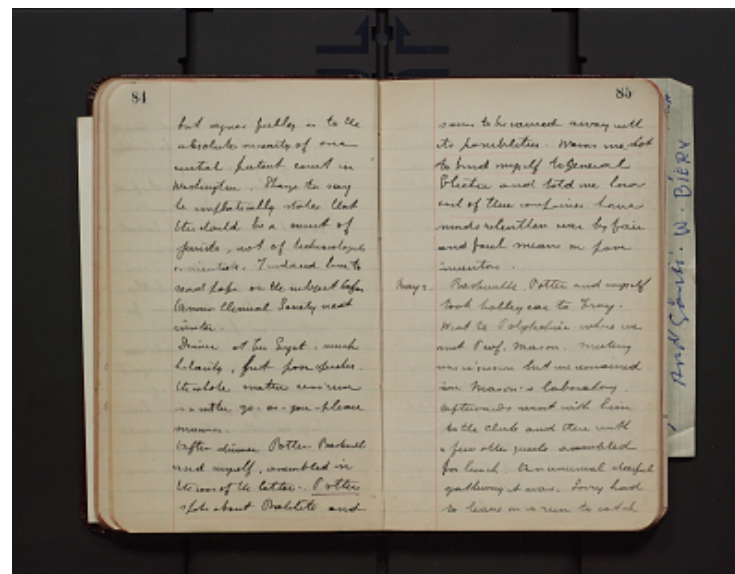 84
but argues feebly as to the
absolute necessity of one
central patent court in
Washington. Strange to say
he emphatically states that
this should be a court of
jurists, not of technologists
or scientists. I induced him to
read paper on the subject before
Chemical Society next
winter.
Dinner at Ten Eyck. much
hilarity, but poor speeches.
The whole matter was run
in rather go-as-you-please
manner.
After dinner Potter Baskerville
and myself, assembled in
the room of the latter. Potter
spoke about Bakelite and
85
seems to be carried away with
its possibilities. Warns me not
to bind myself to General
Electric and told me how
each of these companies have
made relentless war by fair
and foul means on poor
inventors.
May 2. Baskerville, Potter and myself
took trolley car to Troy.
Went to Polytechnic where we
met Prof. Mason. Meeting
was in session but we remained
in Mason's laboratory.
Afterwards went with him
to the club and there with
a few other guests assembled
for lunch. An unusual cheerful
gathering it was. Sorry had
to leave on a run to catch
W. BIERY